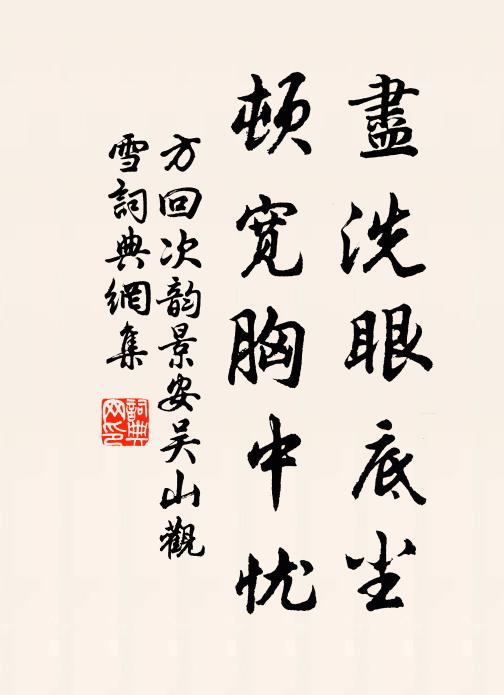 盡洗眼底尘
顿宽胸中忧
方回次韵景安吴山觀
雪詞典網集
詞典
网印